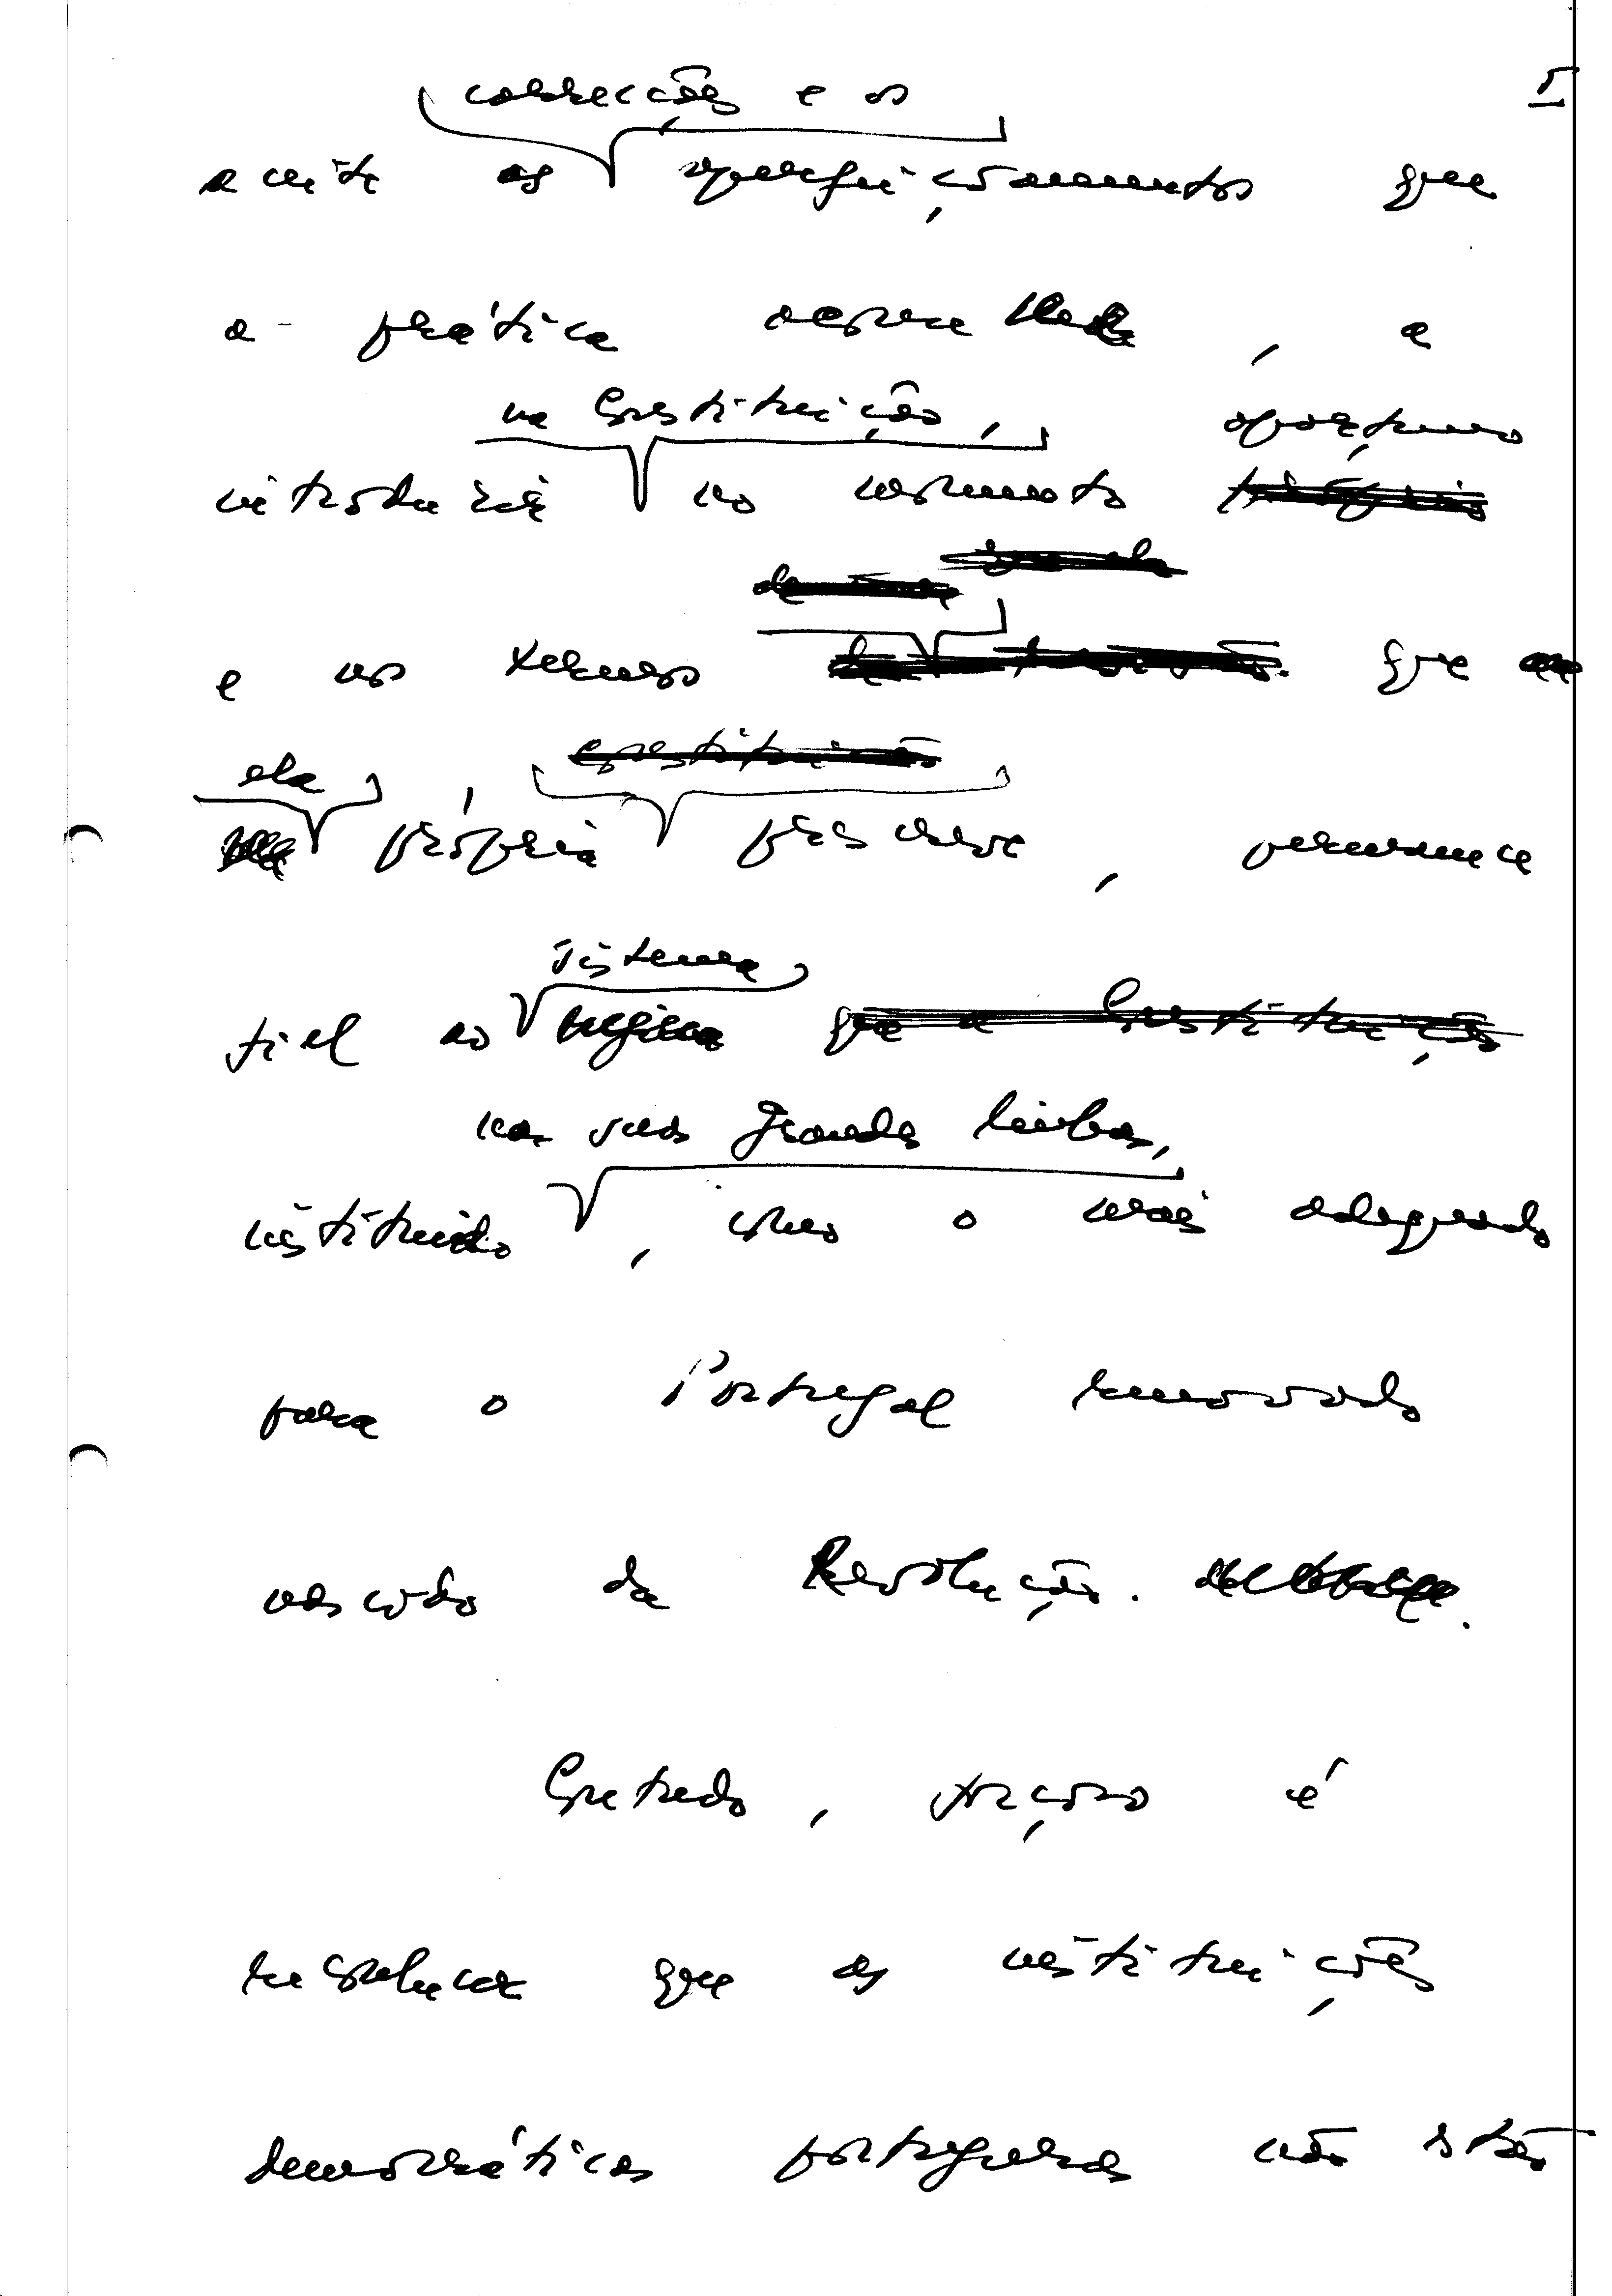 5
correcções e os
aceite as aperfeiçoamentos que
a prática aconselhe, a
na Constituição, oportuno
introduzir no momento
e nos termos que
ela
própria prescreve, permanece
sistema
fiel ao
nas suas grandes linhas,
instituído, como o mais adequado
para o Portugal renovado
nascido da Revolução.
Contudo, forçoso é
reconhecer que as instituições
democráticas portuguesas não estão